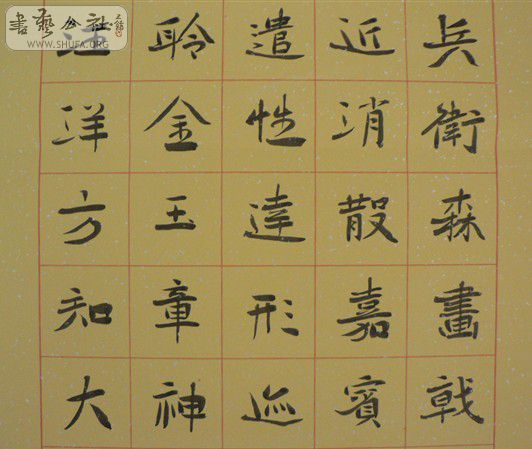 兵衛森畫戟
近消散嘉賓
遣性達形迹
聆金玉章神
洋方知大
書藝公社
WWW.SHUFA.ORG